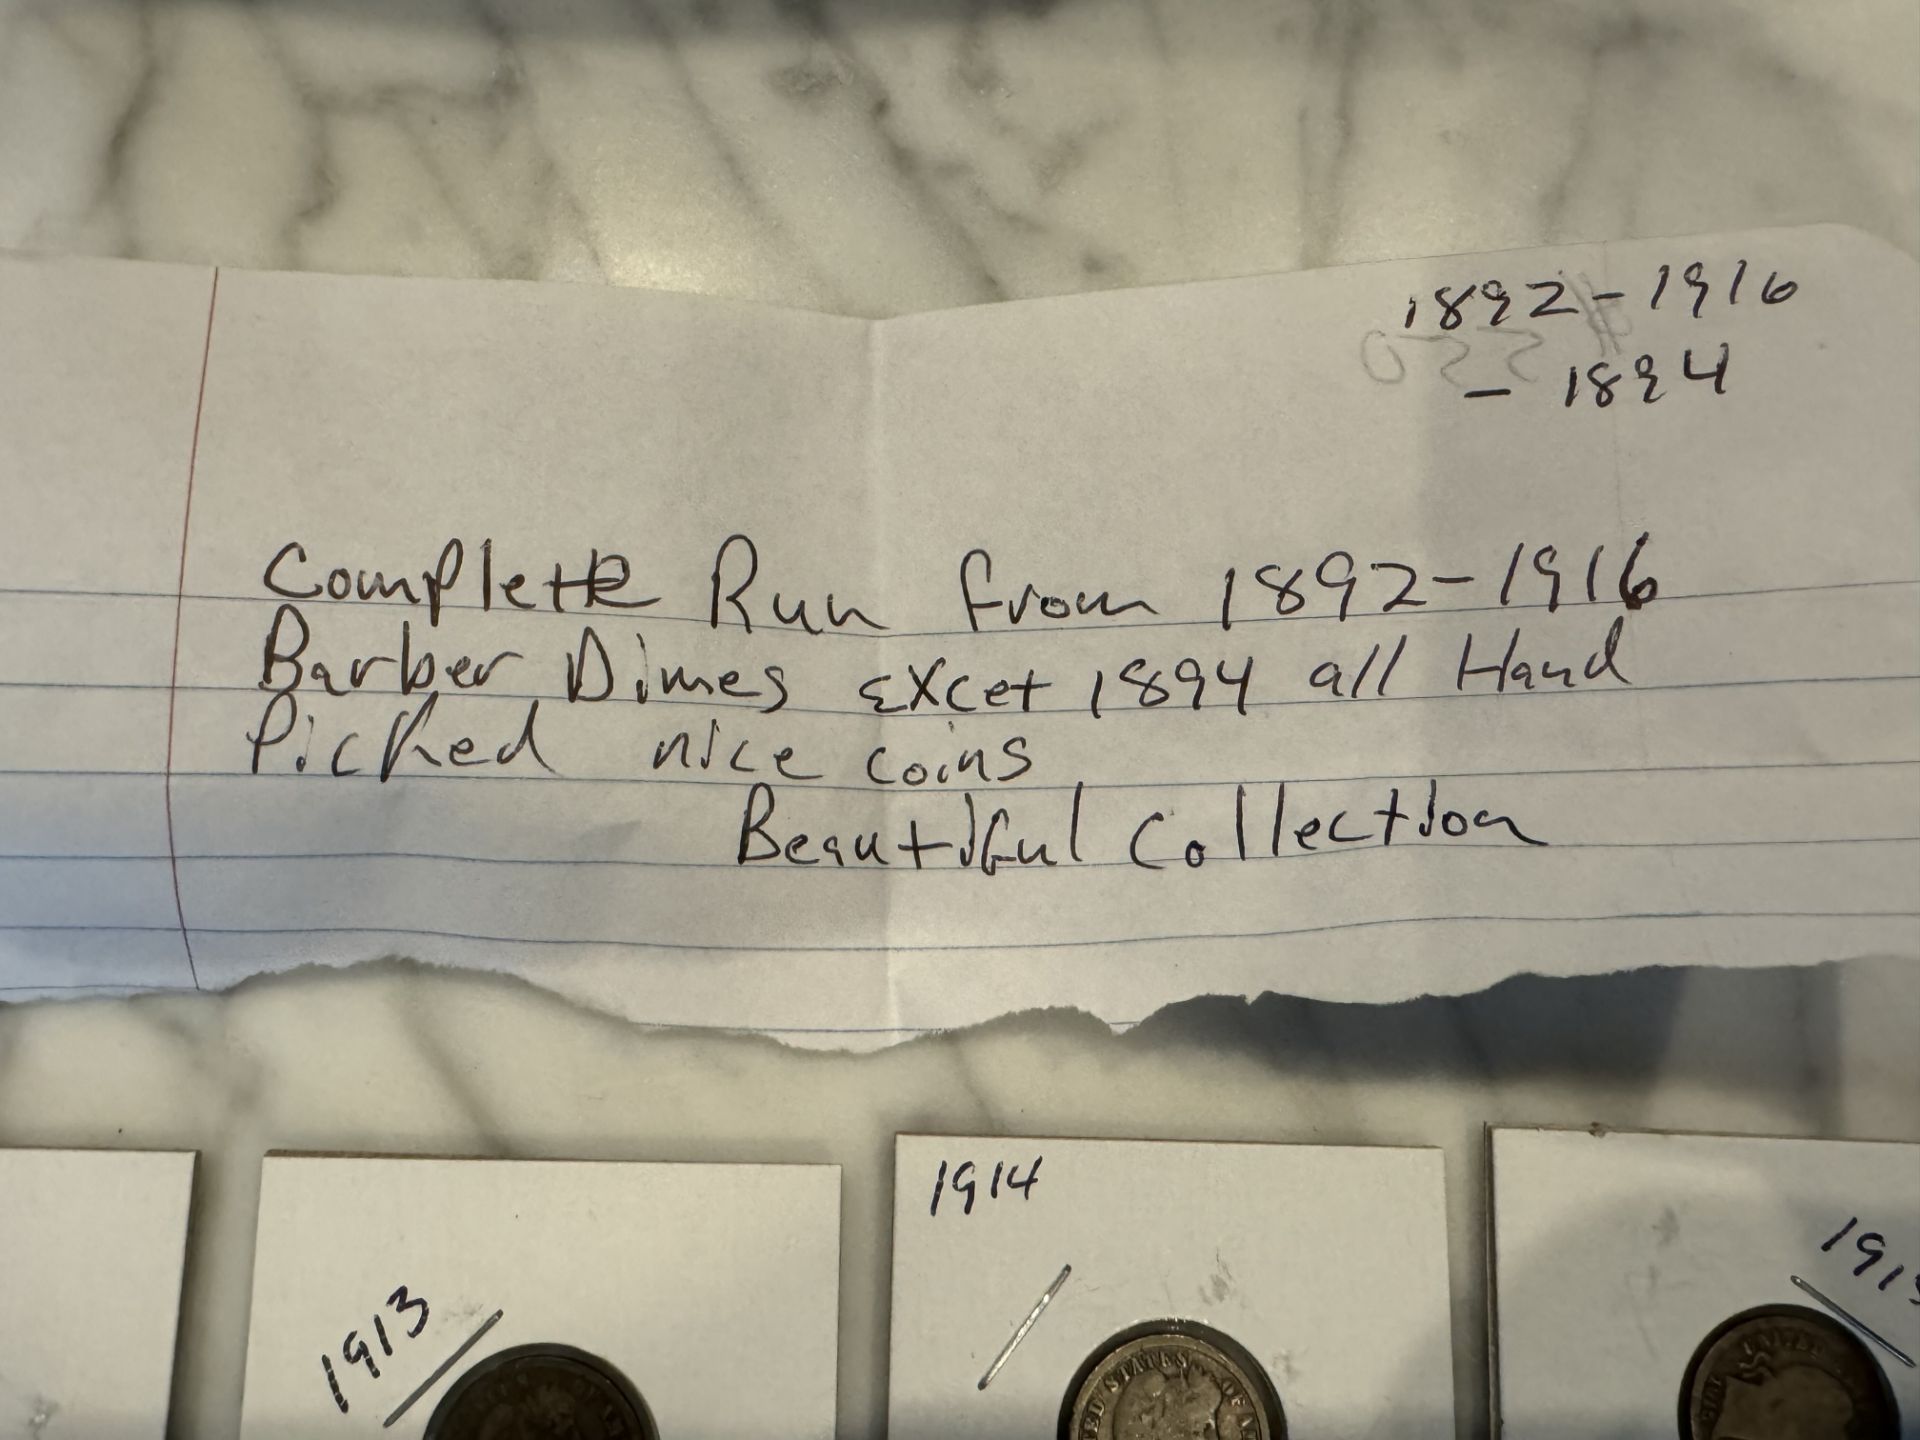 1892-1916
- 1894
Complete Run from 1892-1916
Barber Dimes excet 1894 all Hand
Picked nice coins
Beautiful Collection
1914
1913
STATES OF A